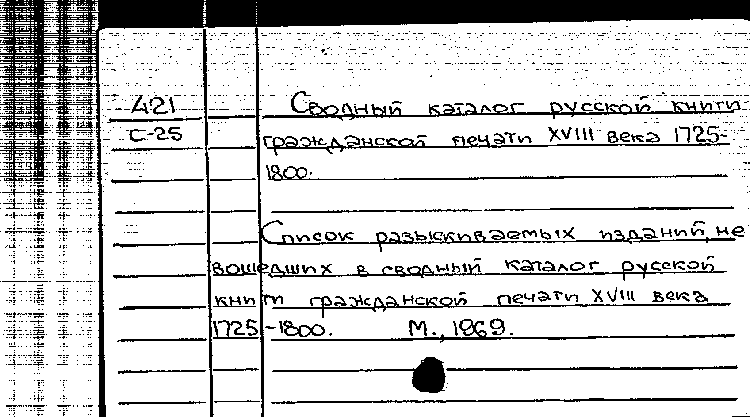 421 Сводный каталог русской книги
С-25 гражданской печати XVIII века 1725-
1800.
Список разыскиваемых изданий, не
вошедших в сводный каталог русской
книги гражданской печати XVIII века
1725-1800. М., 1969.